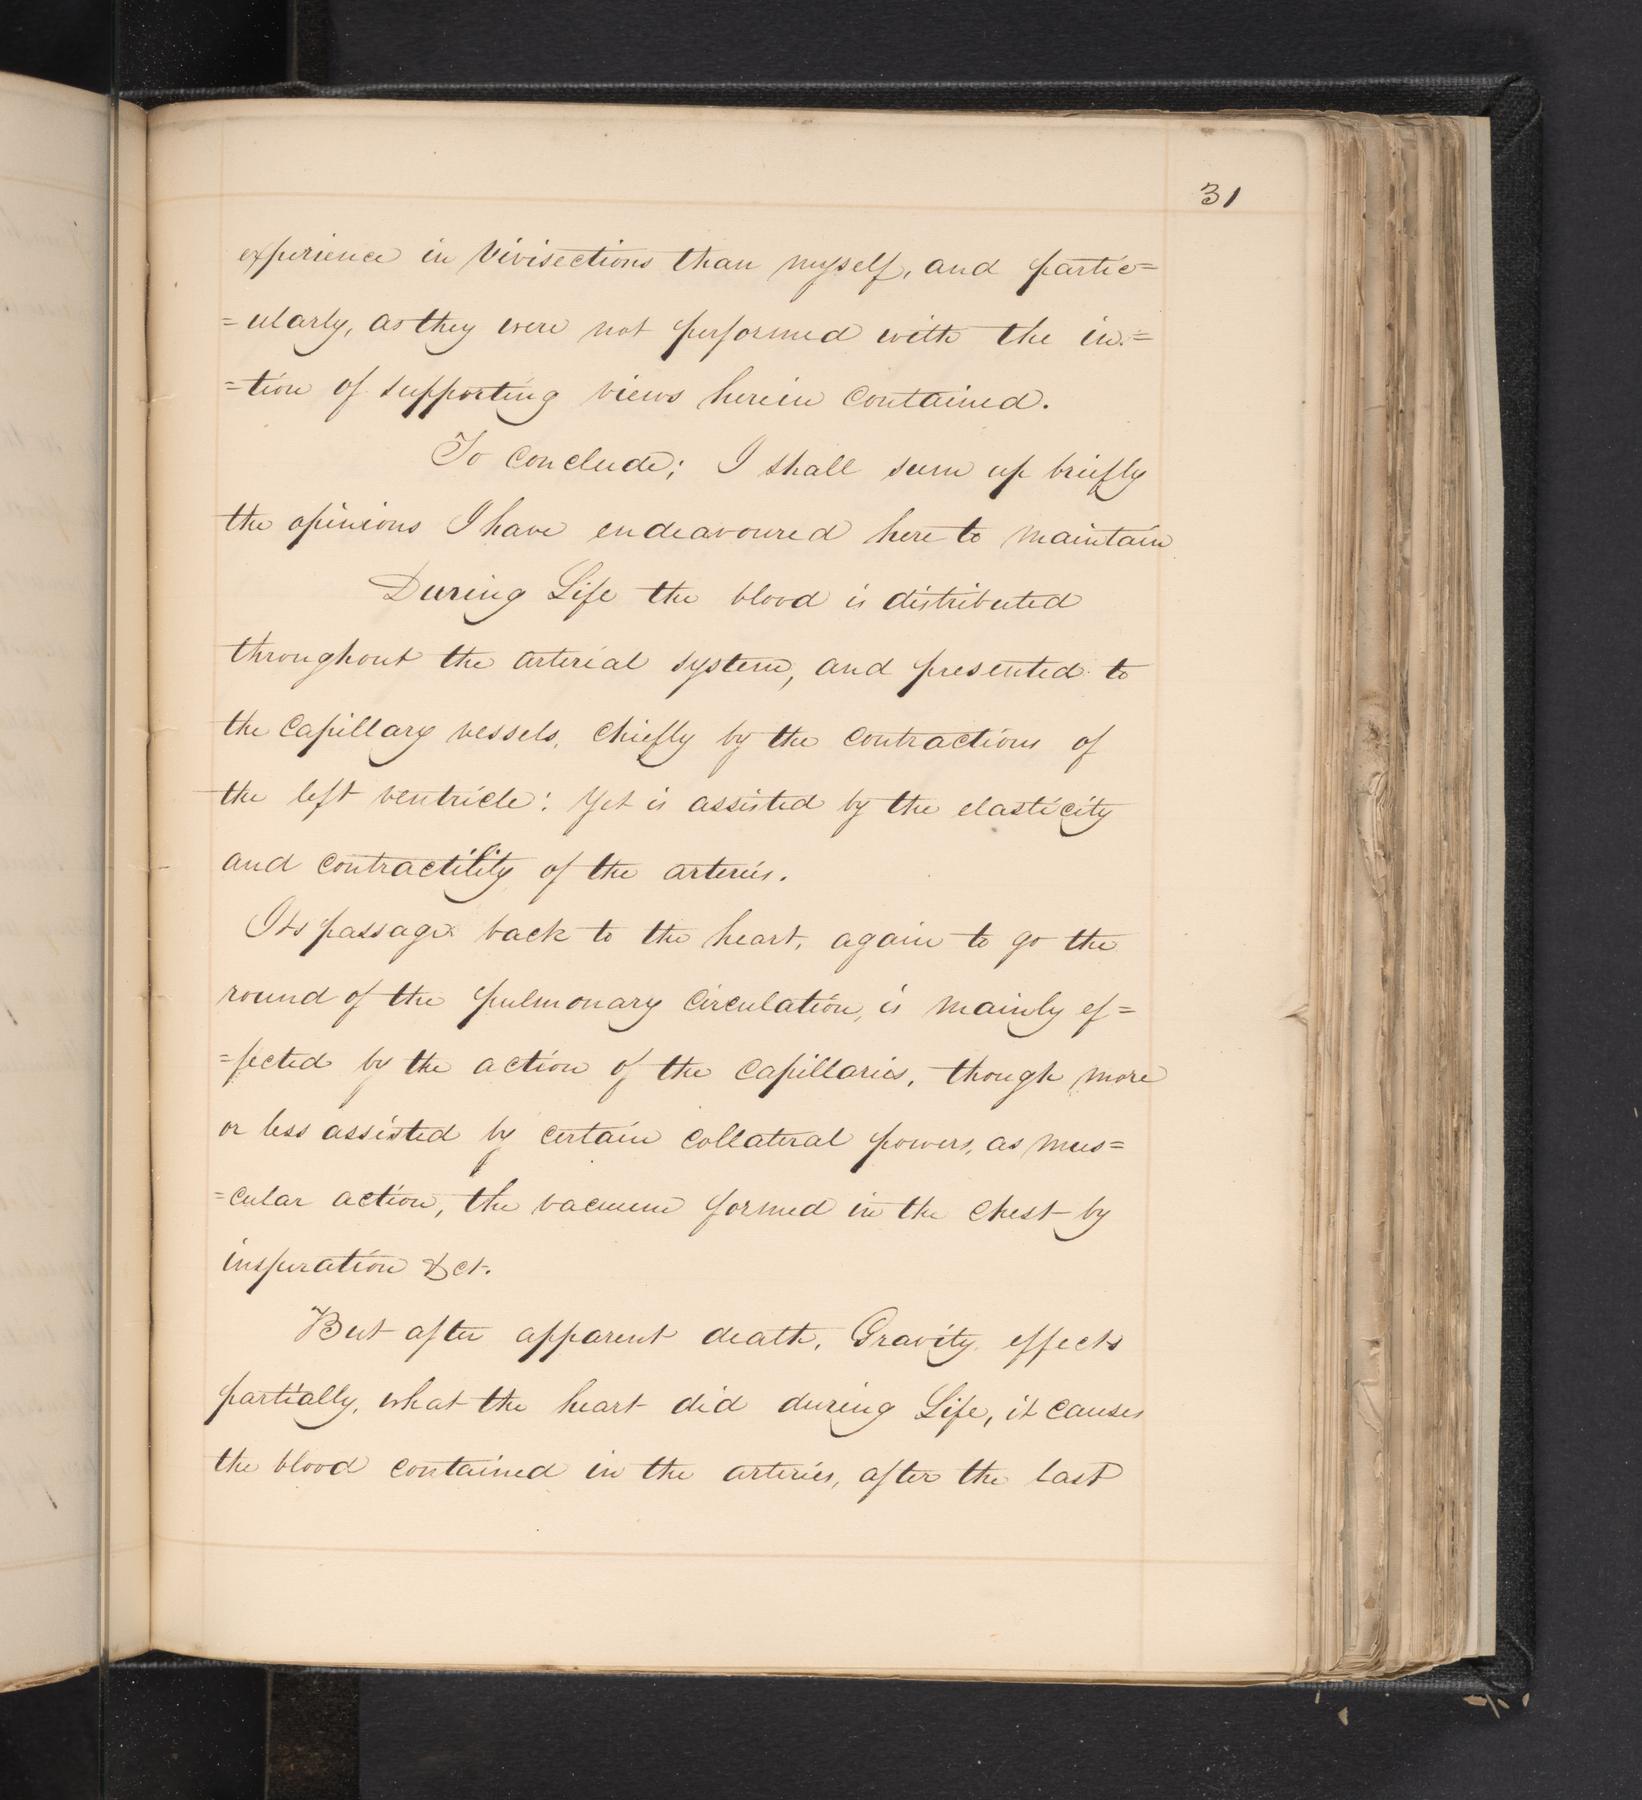 31
experience in Vivisections than myself, and partic=
=ularly, as they were not performed with the in.=
=tion of supporting views herein contained.
To conclude; I shall sum up briefly
the opinions I have endeavoured here to maintain
During Life the blood is distributed
throughout the arterial system, and presented to
the capillary vessels, chiefly by the contractions of
the left ventricle: Yet is assisted by the elasticity
and contractility of the arteries.
Its passage back to the heart, again to go the
round of the pulmonary circulation, is mainly ef=
=fected by the action of the capillaries, though more
or less assisted by certain collateral powers, as mus=
=cular action, the vacuum formed in the chest by
inspiration &ct.
But after apparent death, Gravity effects
partially, what the heart did during Life, it causes
the blood contained in the arteries, after the last